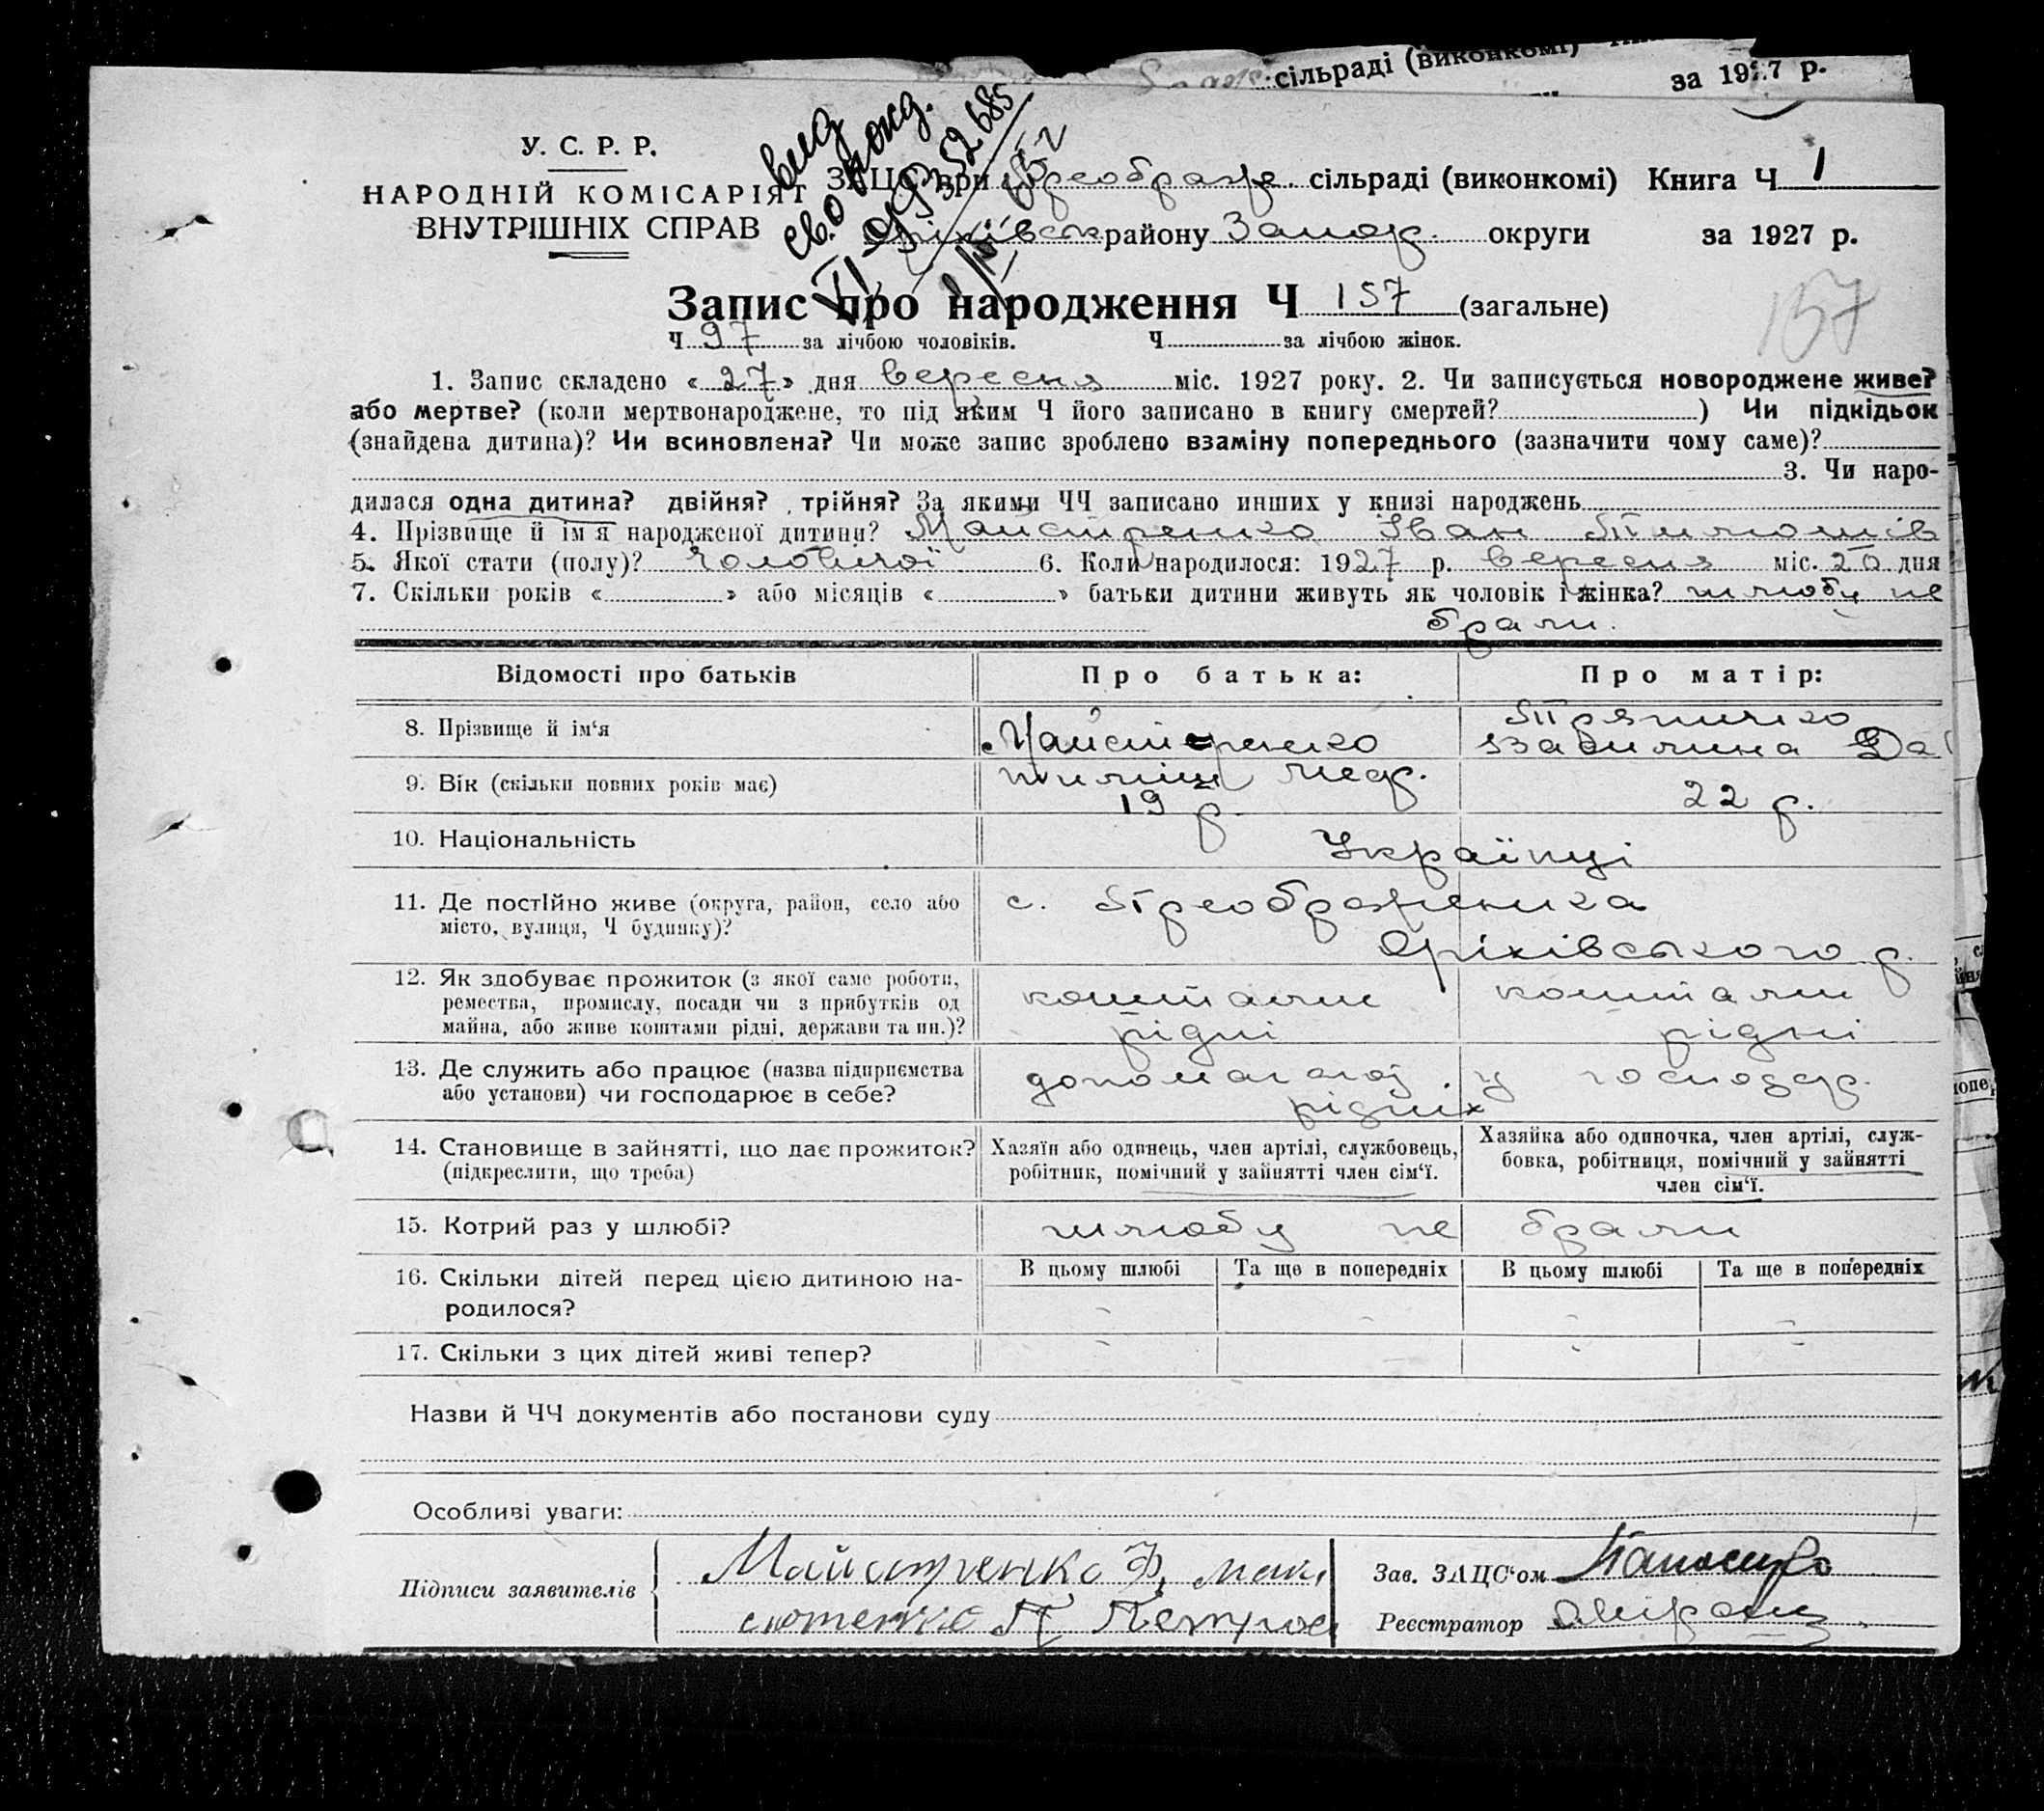 сільраді (виконкомі)
за 1927 р.
У. С. Р. Р.
НАРОДНІЙ КОМІСАРІЯТ
ВНУТРІШНІХ СПРАВ
вид
св. о рожд.
ЗАЦС при Преображ. сільраді (виконкомі) Книга Ч 1
Оріхівськ району Запор. округи за 1927 р.
Запис про народження Ч 157 (загальне)
157
Ч 97 за лічбою чоловіків. Ч за лічбою жінок.
1. Запис складено « 27 » дня вересня міс. 1927 року. 2. Чи записується новороджене живе?
або мертве? (коли мертвонароджене, то під яким Ч його записано в книгу смертей? ) Чи підкідьок
(знайдена дитина)? Чи всиновлена? Чи може запис зроблено взаміну попереднього (зазначити чому саме)?
3. Чи наро-
дилася одна дитина? двійня? трійня? За якими ЧЧ записано инших у книзі народжень
4. Прізвище й ім'я народженої дитини? Майстренко Іван
5. Якої стати (полу)? чоловічої 6. Коли народилося: 1927 р. вересня міс. 20 дня
7. Скільки років « » або місяців « » батьки дитини живуть як чоловік і жінка? шлюбу не
брали.
Відомості про батьків Про батька: Про матір:
8. Прізвище й ім‘я Майстренко
9. Вік (скільки повних років має) 19 р. 22 р.
10. Національність Українці
11. Де постійно живе (округа, район, село або с. Преображенка
місто, вулиця, Ч будинку)? Оріхівського р.
12. Як здобуває прожиток (з якої саме роботи, коштами коштами
ремества, промислу, посади чи з прибутків од рідні рідні
майна, або живе коштами рідні, держави та ин.)?
13. Де служить або працює (назва підприємства у господар.
або установи) чи господарює в себе? рідних
14. Становище в зайнятті, що дає прожиток? Хазяїн або одинець, член артілі, службовець, Хазяйка або одиночка, член артілі, служ-
(підкреслити, що треба) робітник, помічний у зайнятті член сім‘ї. бовка, робітниця, помічний у зайнятті
член сім‘ї.
15. Котрий раз у шлюбі? шлюбу не брали
16. Скільки дітей перед цією дитиною на- В цьому шлюбі Та ще в попередніх В цьому шлюбі Та ще в попередніх
родилося? - - - -
17. Скільки з цих дітей живі тепер? - - - -
Назви й ЧЧ документів або постанови суду
Особливі уваги:
Підписи заявителів Майстренко Ф. Зав. ЗАЦС‘ом
Реєстратор